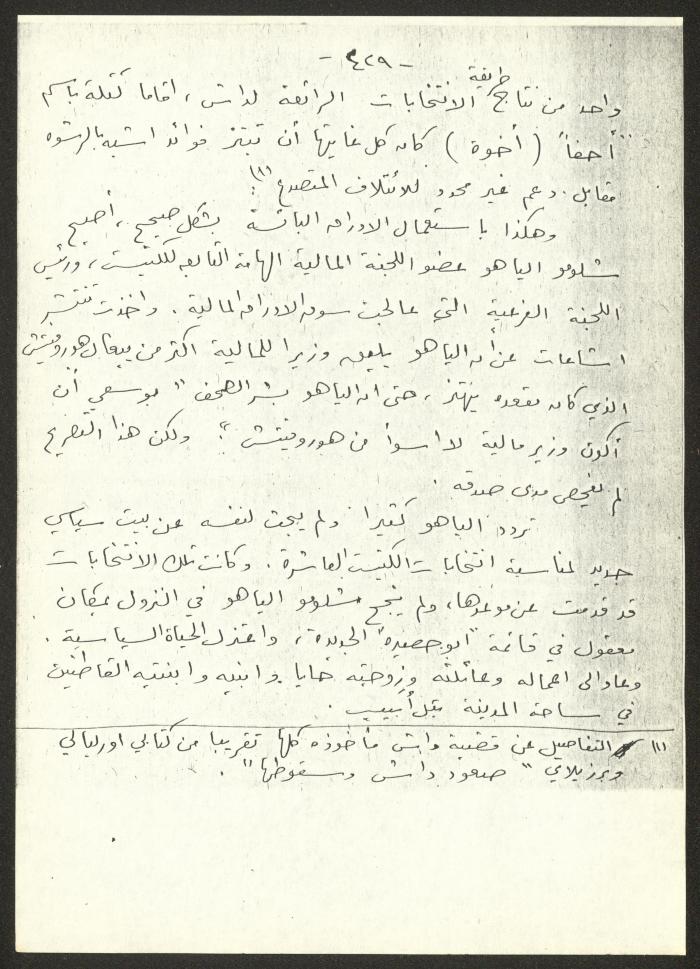 - ٤٢٩ -
طريقة
واحد من نتائج الانتخابات الرائعة لداش، اقاما كتلة باسم
"أحفا" (أخوة) كان كل غايتها أن تبتز فوائد اشبه بالرشوه
مقابل دعم غير محدود للائتلاف المتصدع (١)!
وهكذا باستعمال الاوراق البائسة بشكل صحيح، أصبح
شلومو الياهو عضو اللجنة المالية الهامة التابعه للكنيست، ورئيس
اللجنة الفرعية التي عالجت سوق الاوراق المالية. واخذت تنتشر
اشاعات عن أن الياهو يليق وزيرا للمالية اكثر من يغال هوروفيتش
الذي كان مقعده يهتز، حتى ان الياهو بشر الصحف "بوسعي أن
أكون وزير مالية لا اسوأ من هوروفيتش"؛ ولكن هذا التصريح
لم يفحص مدى صدقه.
تردد الياهو كثيرا ولم يبحث لنفسه عن بيت سياسي
جديد لمناسبة انتخابات الكنيست العاشرة. وكانت تلك الانتخابات
قد قدمت عن موعدها، ولم ينجح شلومو الياهو في النزول بمكان
معقول في قائمة "ابو حصيرة" الجديدة، واعتزل الحياة السياسية.
وعاد الى اعماله وعائلته وزوجته حايا وابنيه وابنتيه القاطنين
في ساحة المدينة بتل أبيب.
(١) التفاصيل عن قضية داش مأخوذه كلها تقريبا من كتابي اورئيالي
وبرزيلاي "صعود داش وسقوطها".